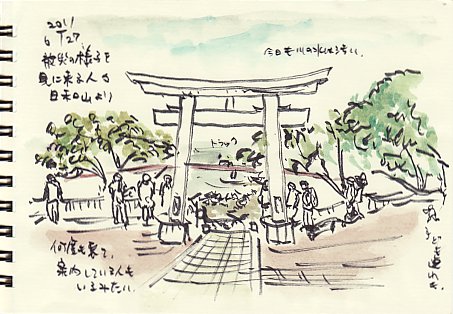 2011
6/27
被災の様子を
見に来る人々
日和山より
今日も川の水は
トラック
何度も来て、
案内している人も
いるみたい。
子ども連れも。